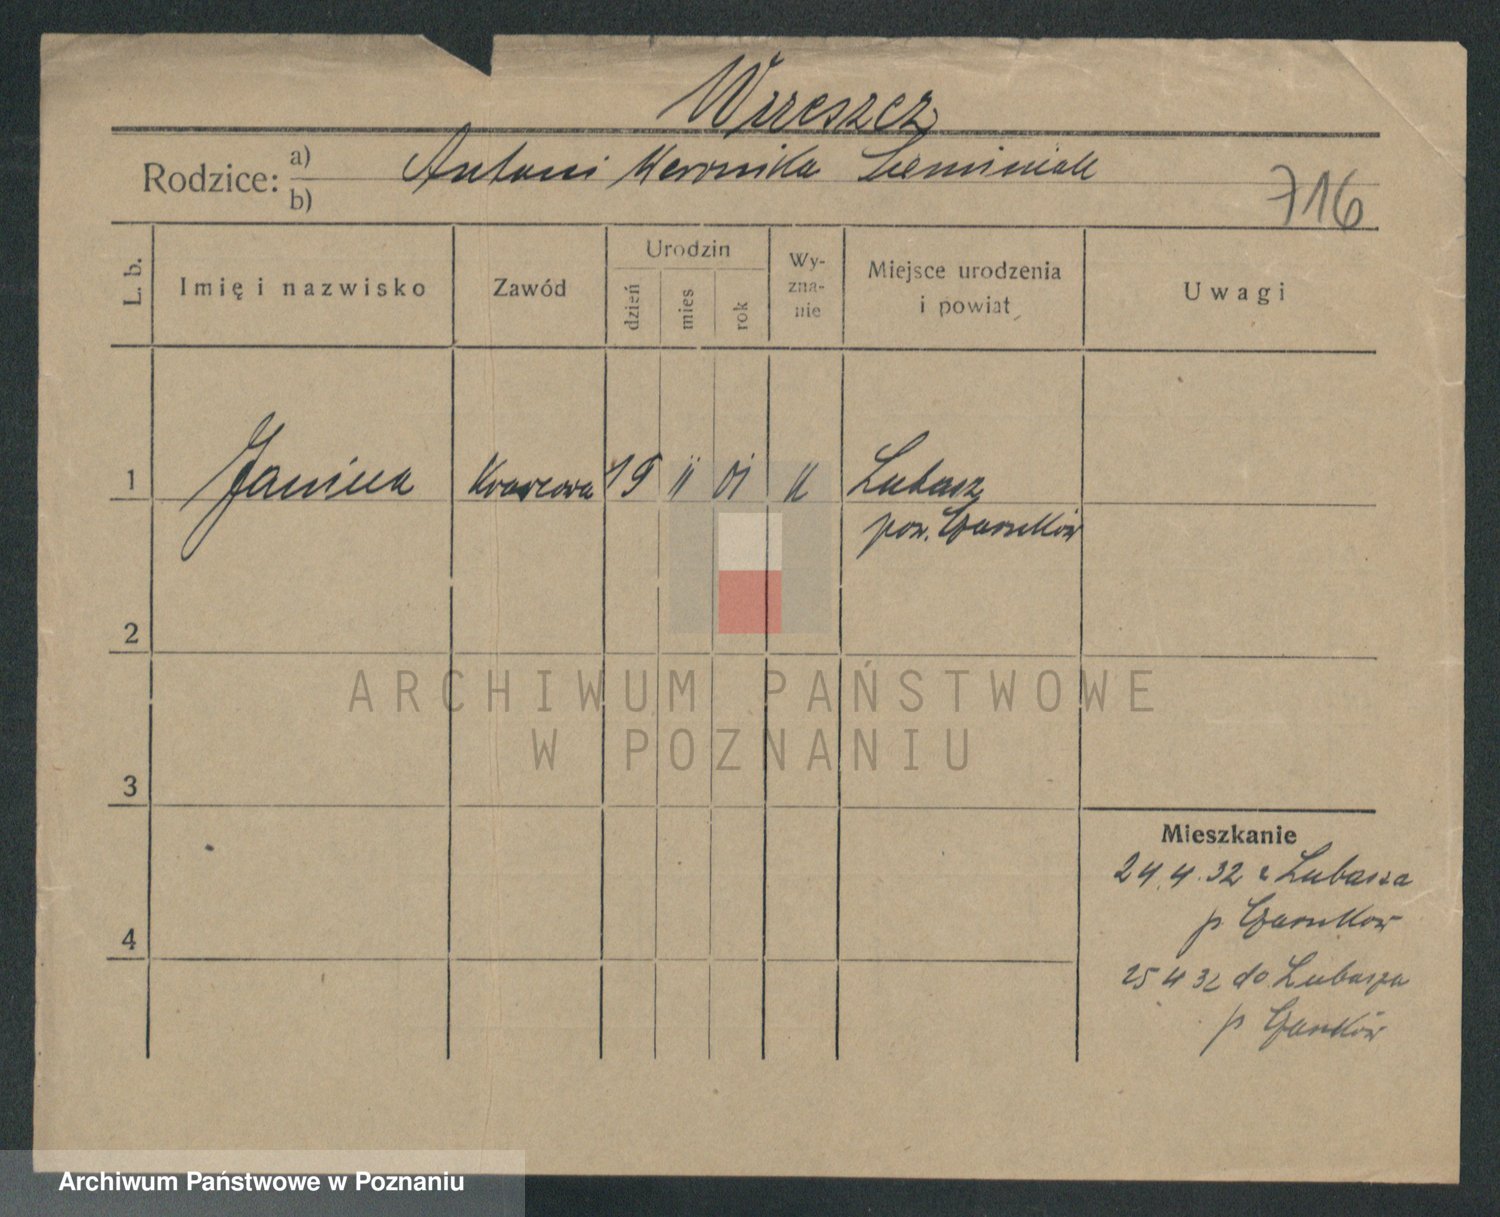 Wreszcz
Rodzice: a) b) Antoni Weronika
716
L. b.
Imię i nazwisko
Zawód
Urodzin
dzień
mies
rok
Wy-
zna-
nie
Miejsce urodzenia
i powiat
Uwagi
1 Janina Krawcowa 19 II 01 k Lubasz
pow. Czarnków
2
3
4
Mieszkanie
24.4.32 z Lubasza
p Czarnków
25 4 32 do Lubasza
p Czarnków
ARCHIWUM PAŃSTWOWE
W POZNANIU
Archiwum Państwowe w Poznaniu